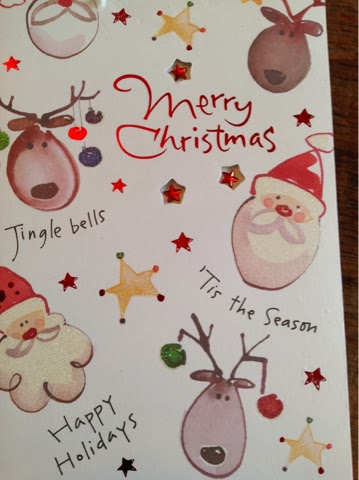 Merry
Christmas
Jingle bells
'Tis the Season
Happy
Holidays